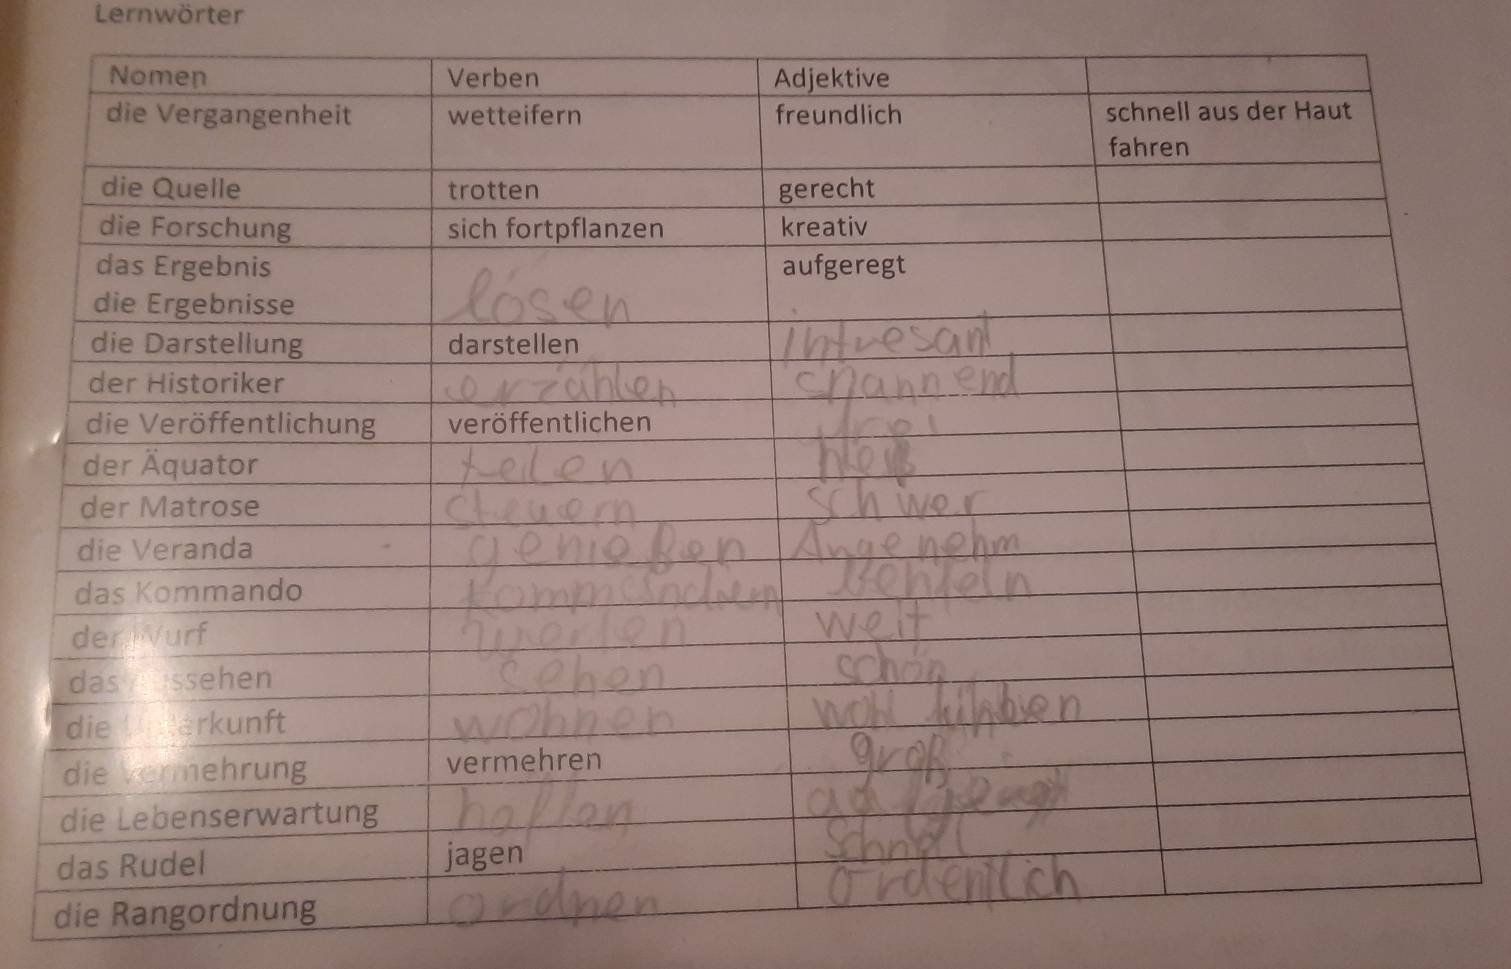 Lernwörter
Nomen Verben Adjektive
die Vergangenheit wetteifern freundlich schnell aus der Haut
fahren
die Quelle trotten gerecht
die Forschung sich fortpflanzen kreativ
das Ergebnis aufgeregt
die Ergebnisse lösen
die Darstellung darstellen intresant
der Historiker erzählen spannend
die Veröffentlichung veröffentlichen frei
der Äquator teilen heiß
der Matrose steuern schwer
die Veranda genießen Angenehm
das Kommando
der Wurf weit
das Aussehen sehen schön
die Unterkunft wohnen wohl
die Vermehrung vermehren groß
die Lebenserwartung hoffen
das Rudel jagen schnell
die Rangordnung ordnen ordentlich